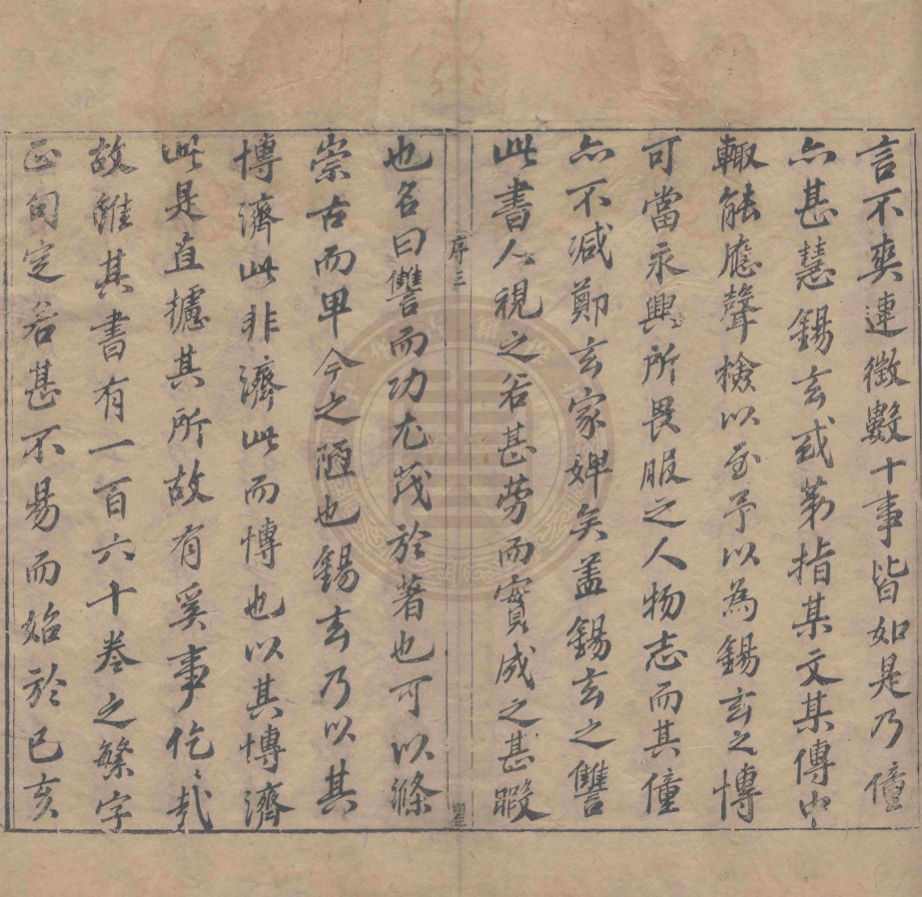 言不爽連徵數十事皆如是乃僮
亦甚慧錫玄或第指某文某傳中
輙能應聲檢以至予以為錫玄之博
可當永興所畏服之人物志而其僮
亦不減鄭玄家婢矣盖錫玄之讐
此書人視之若甚勞而實成之甚暇
序三
也名曰讐而功尤茂於著也可以滌
崇古而卑今之陋也錫玄乃以其
博濟此非濟此而博也以其博濟
此是直攄其所故有奚事伫〻哉
故雖其書有一百六十卷之繁字
正句定若甚不易而始於己亥